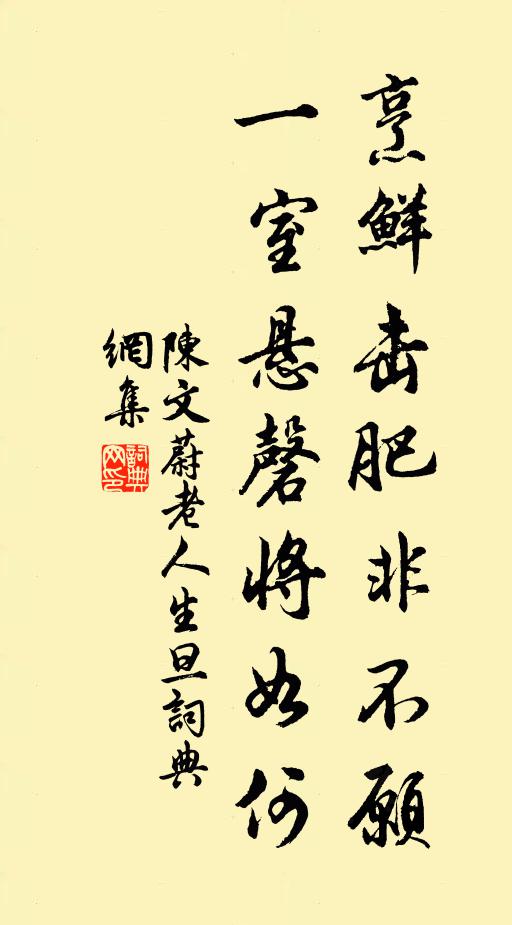 烹鮮击肥非不願
一室悬磬將如何
陳文蔚老人生旦詞典
網集
詞典
网印